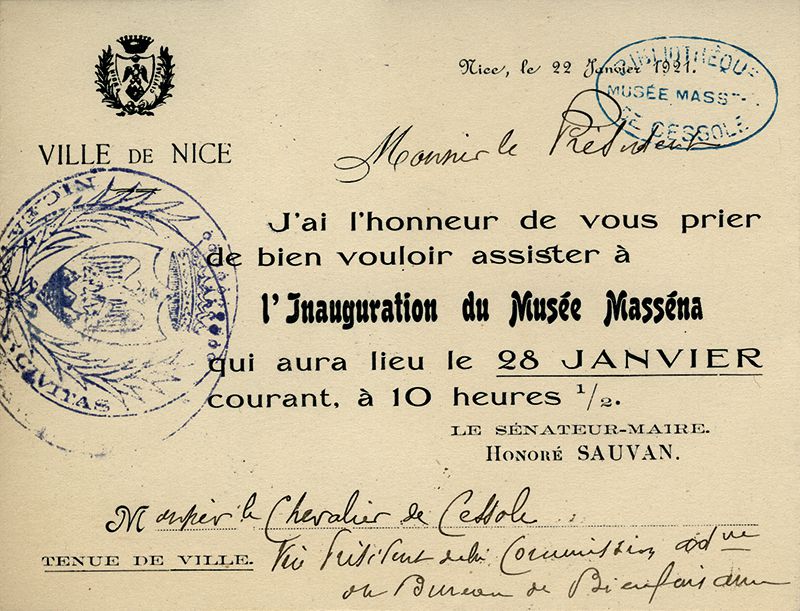 Nice, le 22 Janvier 1921.
BIBLIOTHÈQUE
MUSÉE MASSÉNA
DE CESSOLE
VILLE DE NICE
Monsieur le Président
NIC
CIVITAS
J'ai l'honneur de vous prier
de bien vouloir assister à
l'Inauguration du Musée Masséna
qui aura lieu le 28 JANVIER
courant, à 10 heures 1/2.
LE SÉNATEUR-MAIRE.
HONORÉ SAUVAN.
Monsieur le Chevalier de Cessole
TENUE DE VILLE.
Vice Président de la Commission adve
du Bureau de Bienfaisance